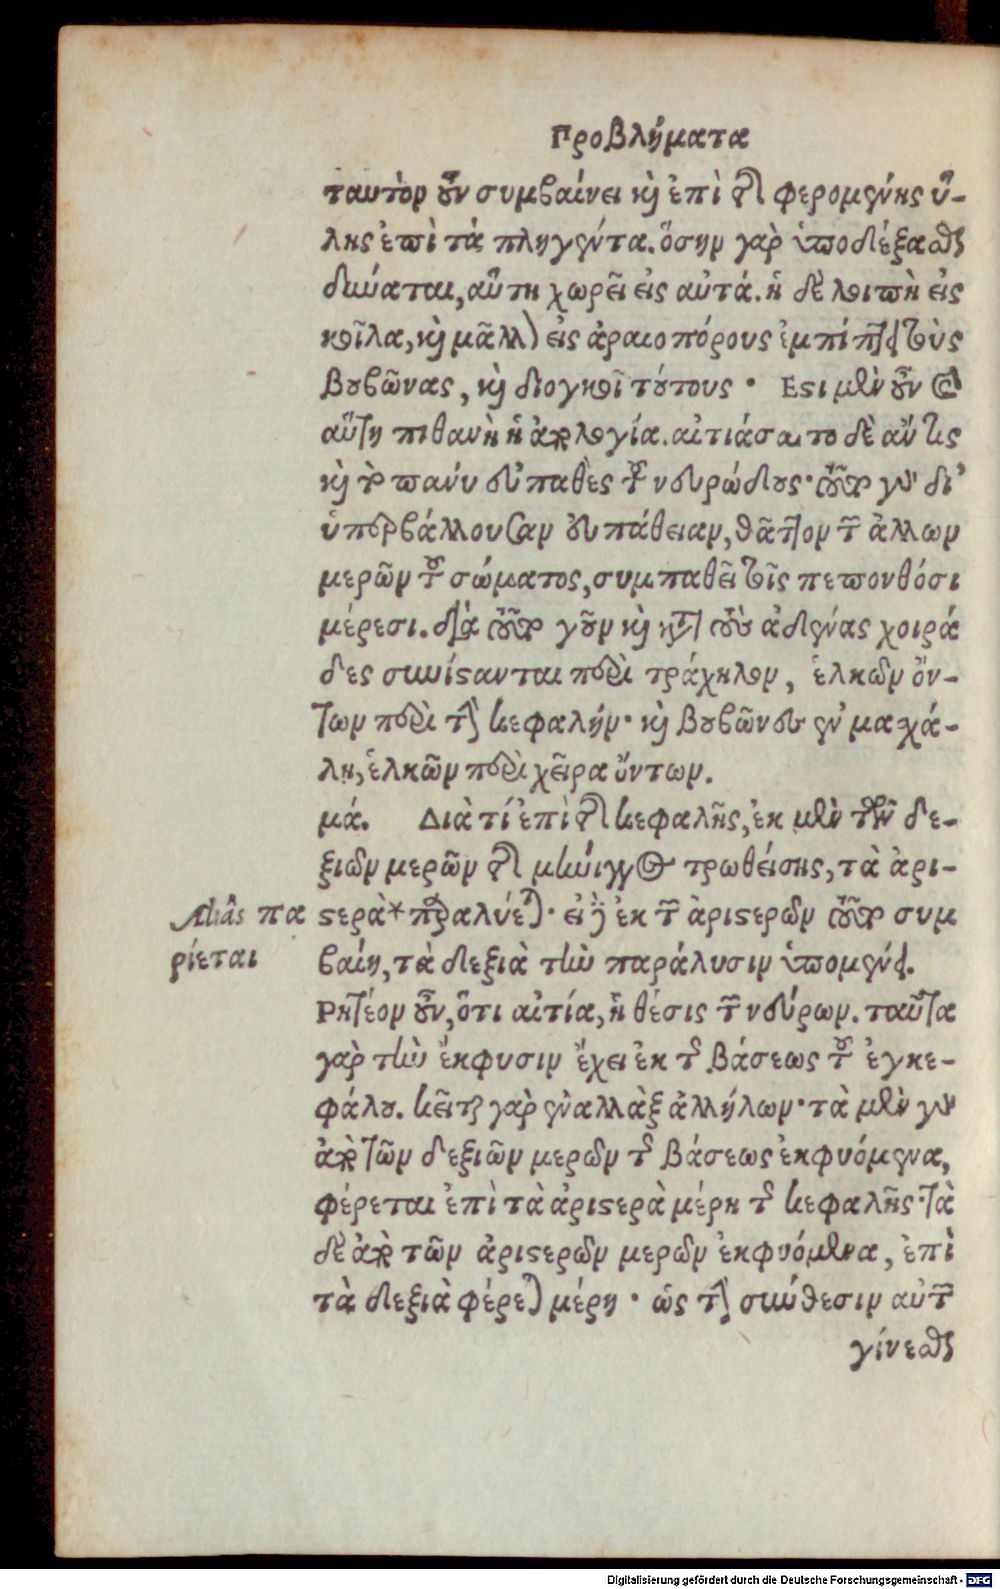 Προβλήματα
ταυτὸν οὖν συμβαίνει καὶ ἐπὶ τῆς φερομένης ὕ-
λης ἐπὶ τὰ πληγέντα. ὅσην γὰρ ὑποδέξασθαι
δύναται, αὕτη χωρεῖ εἰς αὐτά. ἡ δὲ λοιπὴ εἰς
κοῖλα, καὶ μᾶλλον εἰς ἀραιοπόρους ἐμπίπτει τοὺς
βουβῶνας, καὶ διογκοῖ τούτους · Εστι μὲν οὖν καὶ
αὕτη πιθανὴ ἡ ἀπολογία. αἰτιάσαιτο δὲ ἄν τις
καὶ τὸ πάνυ εὐπαθὲς τοῦ νευρώδους· τοῦτο γὰρ δι'
ὑπερβάλλουσαν εὐπάθειαν, θᾶττον τῶν ἄλλων
μερῶν τοῦ σώματος, συμπαθεῖ τοῖς πεπονθόσι
μέρεσι. διὰ τοῦτο γοῦν καὶ κατὰ τοὺς ἀδένας χοιρά
δες συνίστανται περὶ τράχηλον, ἑλκῶν ὄν-
των περὶ τὴν κεφαλήν· καὶ βουβῶνες ἐν μαχά-
λῃ, ἑλκῶν περὶ χεῖρα ὄντων.
μά. Διὰ τί ἐπὶ τῆς κεφαλῆς, ἐκ μὲν τῶν δε-
ξιῶν μερῶν τῆς μήνιγγος τρωθείσης, τὰ ἀρι-
Aliâs πα
ρίεται
στερὰ* παραλύεται· εἰ δὲ ἐκ τῶν ἀριστερῶν τοῦτο συμ
βαίη, τὰ δεξιὰ τὴν παράλυσιν ὑπομένει.
Ρητέον οὖν, ὅτι αἰτία, ἡ θέσις τῶν νεύρων. ταῦτα
γὰρ τὴν ἔκφυσιν ἔχει ἐκ τῆς βάσεως τοῦ ἐγκε-
φάλου. κεῖται γὰρ ἐναλλὰξ ἀλλήλων· τὰ μὲν γὰρ
ἀπὸ τῶν δεξιῶν μερῶν τῆς βάσεως ἐκφυόμενα,
φέρεται ἐπὶ τὰ ἀριστερὰ μέρη τῆς κεφαλῆς· τὰ
δὲ ἀπὸ τῶν ἀριστερῶν μερῶν ἐκφυόμενα, ἐπὶ
τὰ δεξιὰ φέρεται μέρη · ὡς τὴν σύνθεσιν αὐτῶν
γίνεσθαι
Digitalisierung gefördert durch die Deutsche Forschungsgemeinschaft - DFG